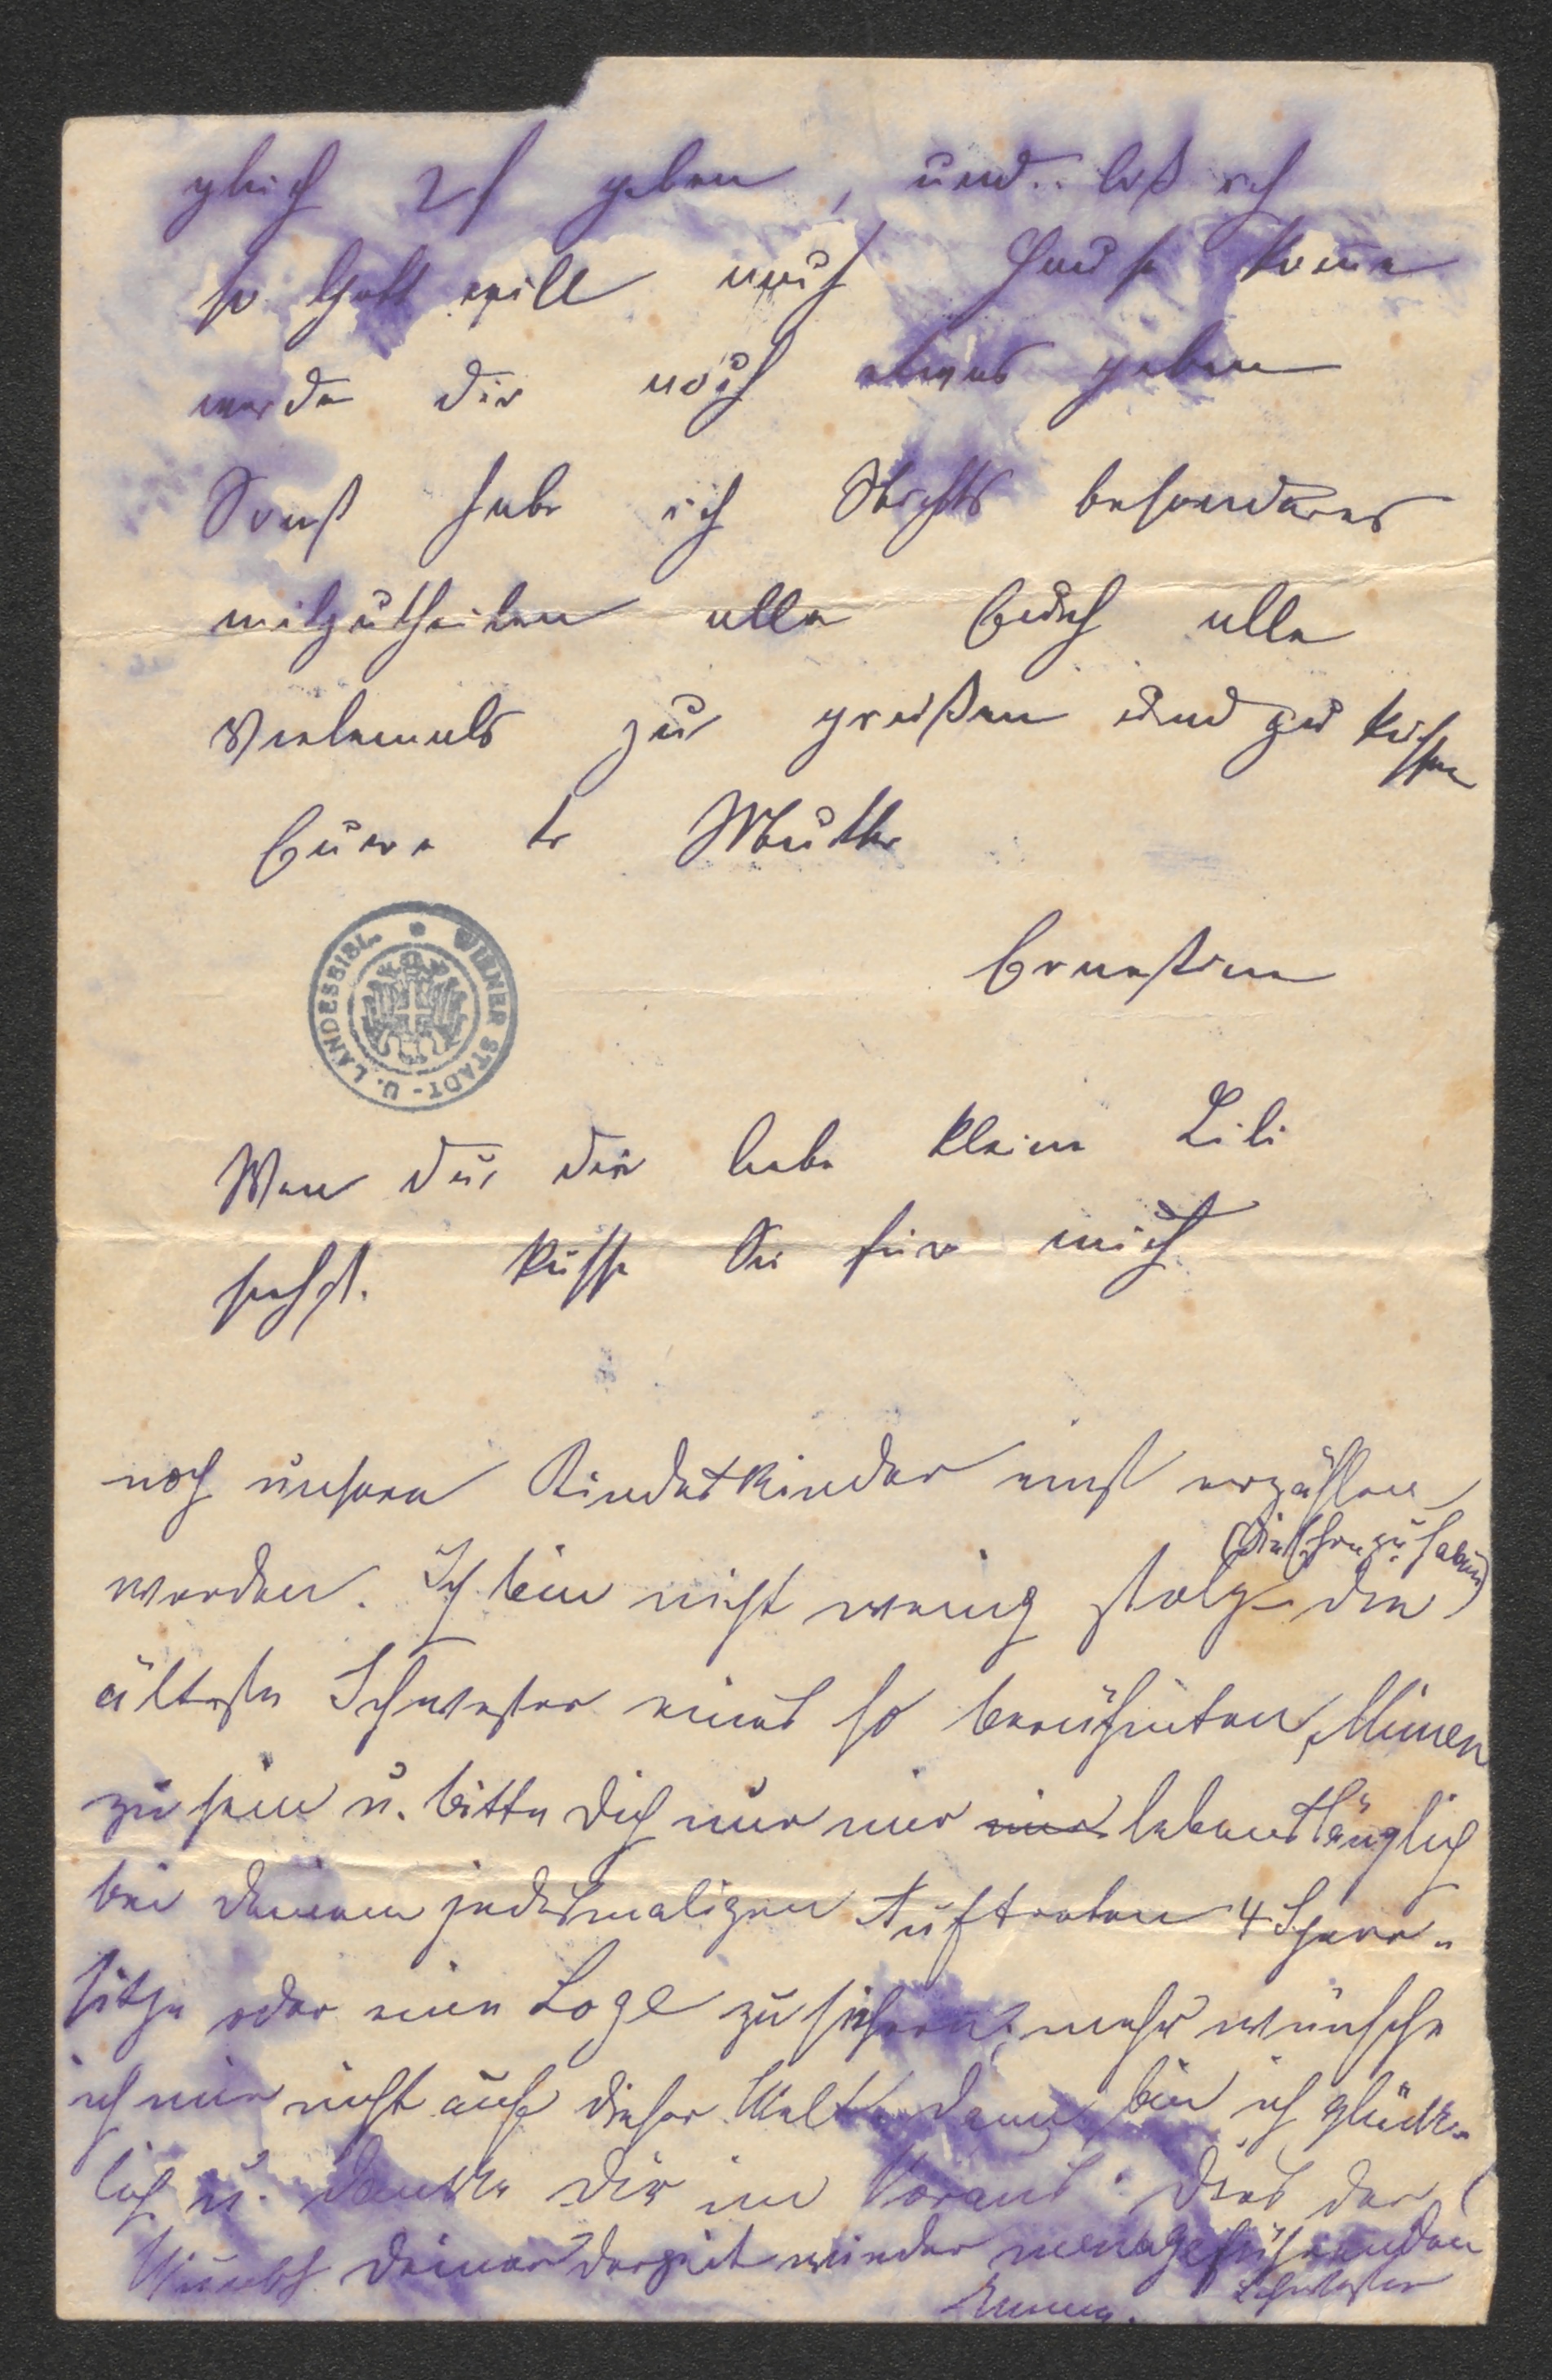 gleich 2 f geben, und bis ich
so Gott will nach Hause kome
werde dir noch etwas geben
Sonst habe ich Nichts besonderes
mitzutheilen alle Euch alle
Vielemals zu greißen und zu küssen
Euere tr Mutter
Ernestine
WIENER STADT- U. LANDESBIBL.
Wen du die liebe kleine Lili
siehst. küsse Sie für mich
noch unsere Kindeskinder einst erzählen
werden. Ich bin nicht wenig stolz die
(die Ehre zu haben)
älteste Schwester eines so berühmten Mimen
zu sein u. bitte dich nur mir lebenslänglich
bei deinem jedesmaligen Auftreten 4 Sperr-
sitze oder eine Loge zu sichern; mehr wünsche
ich mir nicht auf dieser Welt. dann bin ich glück-
lich u. danke dir im Voraus. Dies der
Wunsch deiner derzeit wieder menageführenden
Schwester
Emma.